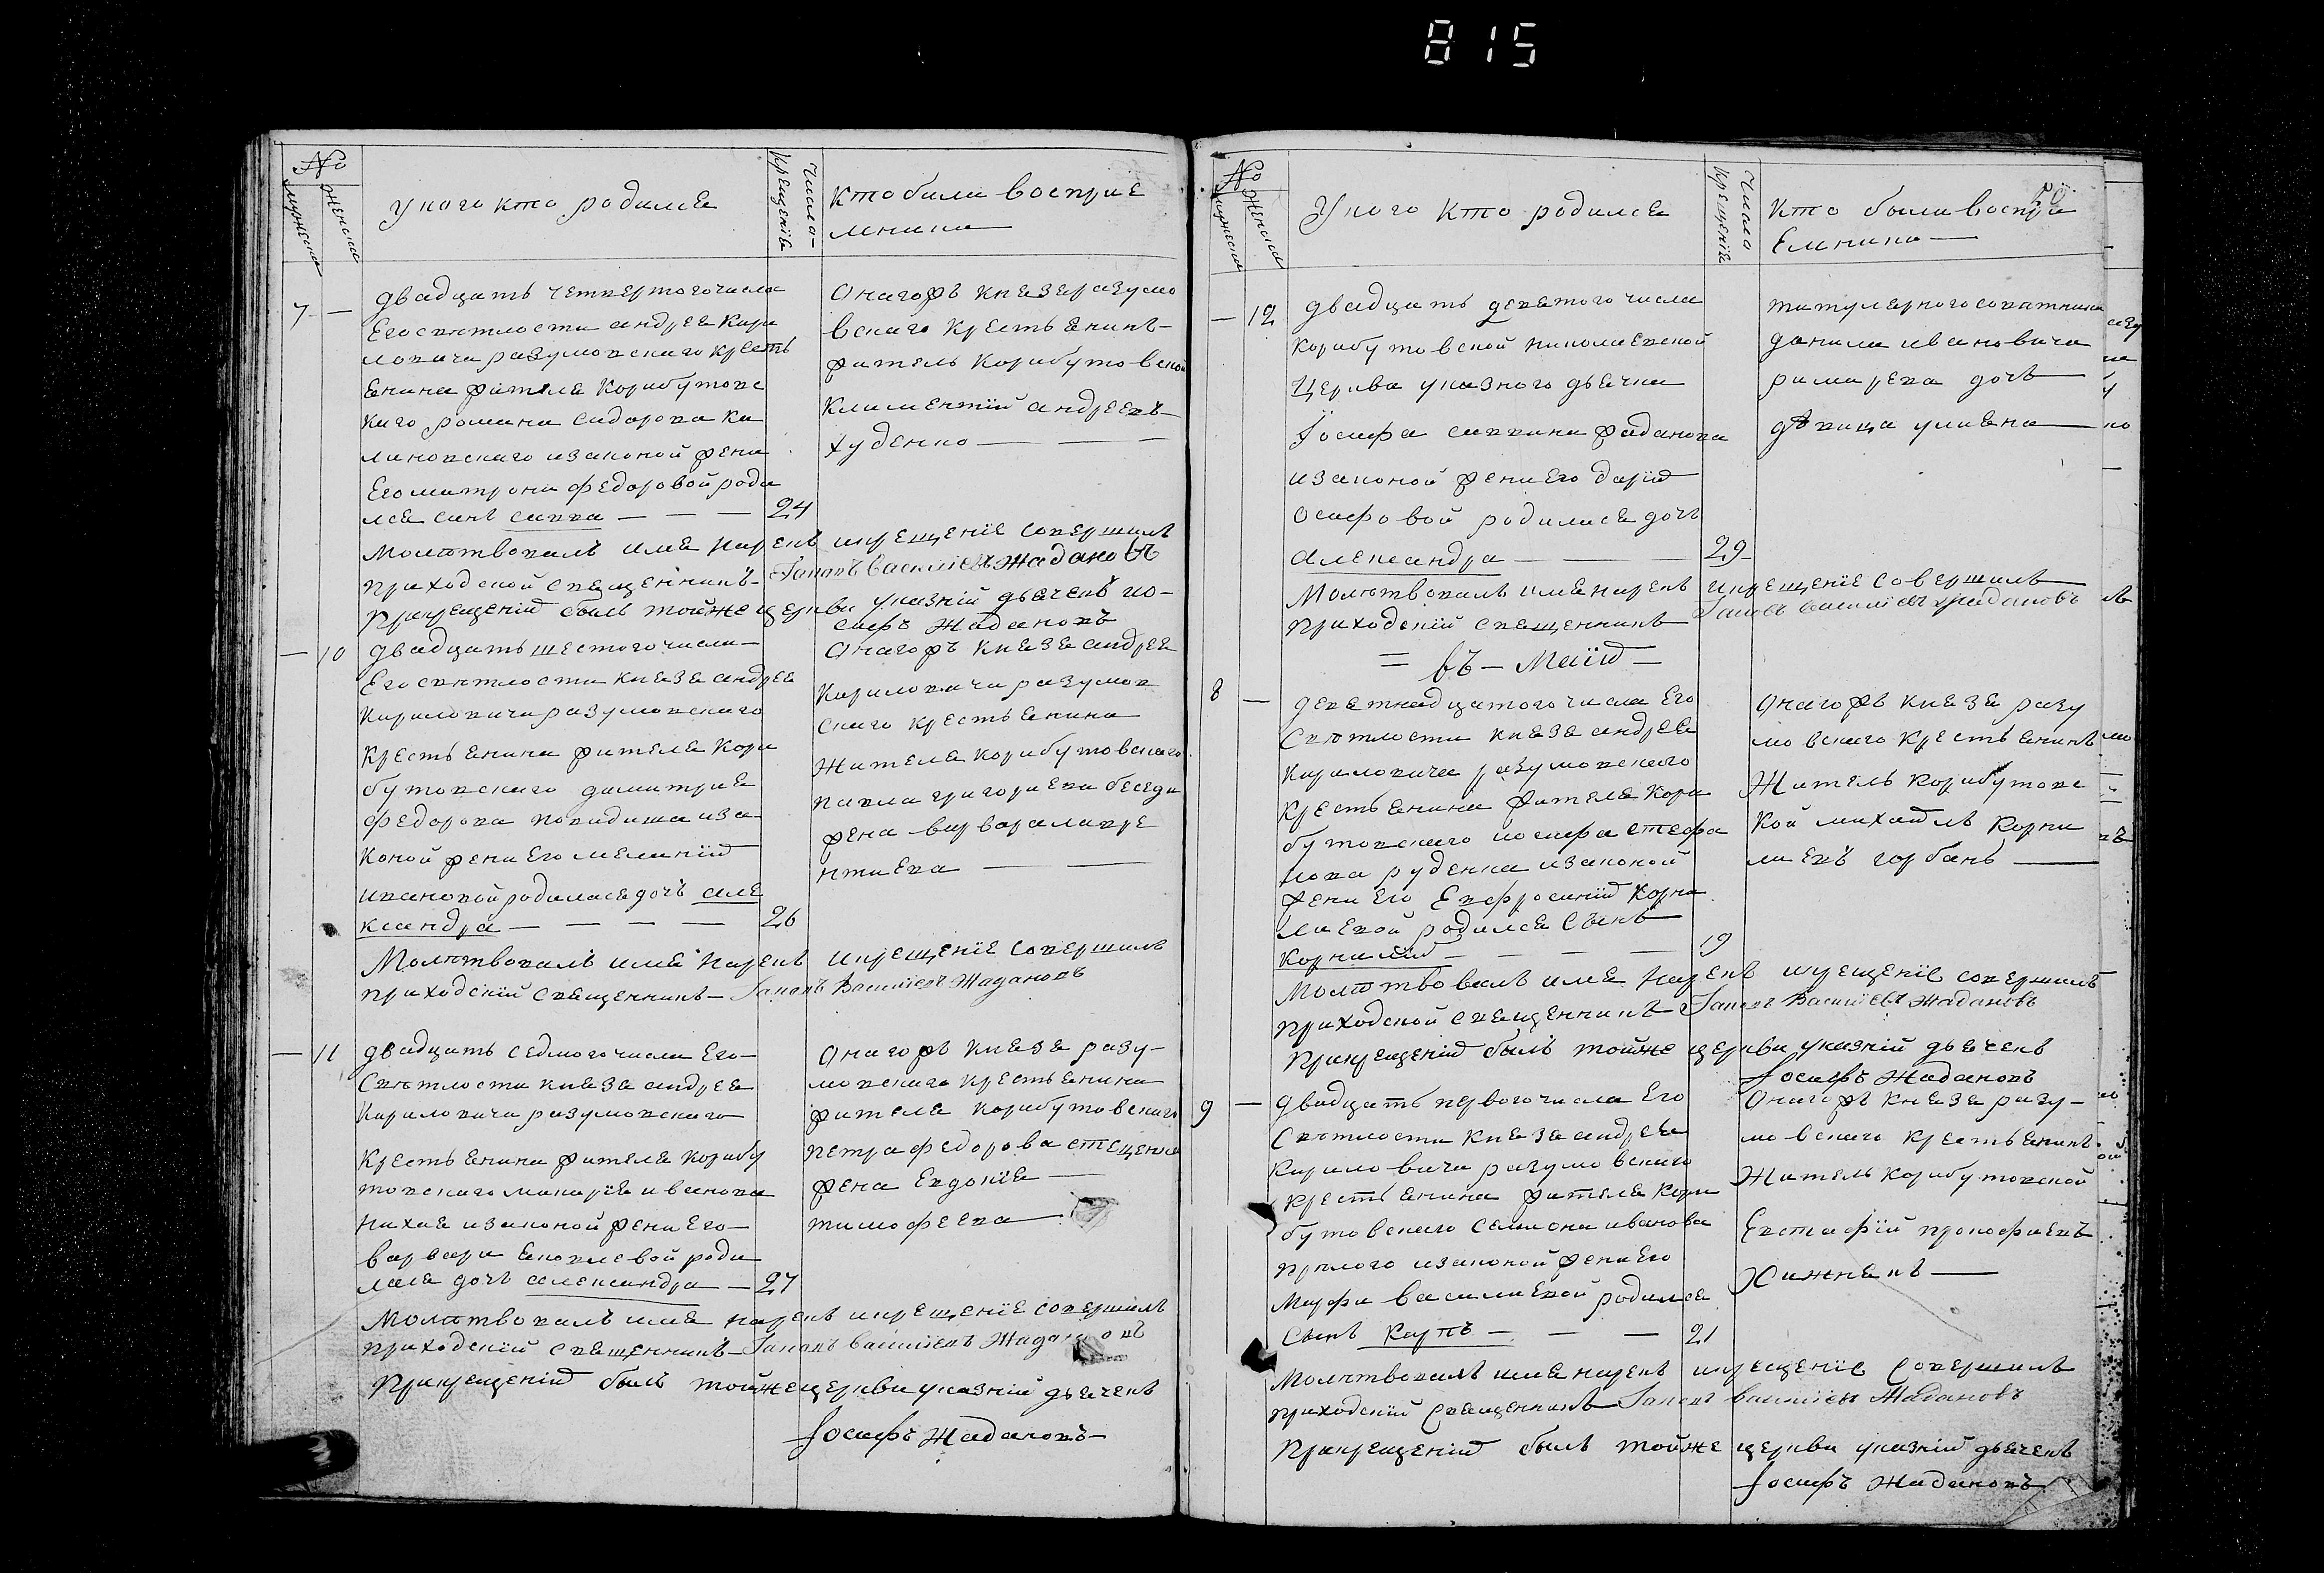 815
№
мужеска
женска
У кого кто родился
Числа
крещение
Кто били восприе
мники
7 —
двадцать четвертого числа
Его светлости андрея Кири
ловича разумовского кресть
янина жителя Корибутовс
каго романа Сидорова Ка
линовского изаконой жени
Его матрони федоровой роди
лся синъ савва — — — 24
Онагожъ князя разумо
вскаго крестьянинъ
житель Корибутовской
Климентій андреевъ
худенко — — —
Молитвовалъ имя нарекъ икрещеніе совершилъ
приходской священникъ Іаковъ Василіевъ Жадановъ
Прикрещеніи былъ тойже церкви указній дьячекъ Ио-
сифъ Жадановъ
— 10
двадцать шестого числа
Его светлости князя андрея
Кириловича разумовскаго
крестьянина жителя Кори
бутовскаго димитрия
федорова иза-
коной жени Его меланіи
ивановой родилася дочъ але
ксандра — — — — 26
Онагожъ князя андрея
Кириловича разумов
скаго крестьянина
Жителя корибутовскаго
павла григориева беседи
жена варвара лавре
нтиева — —
Молитвовалъ имя нарекъ икрещеніе совершилъ
приходскій священникъ — Іаковъ Василіевъ Жадановъ
— 11
двадцать седмого числа Его
Светлости князя андрея
Кириловича разумовскаго
Крестьянина жителя Корибу
товскаго макарія иванова
изаконой жени Его
варвари яковлевой роди
лася дочъ александра — 27
Онагожъ князя разу-
мовскаго крестьянина
жителя корибутовскаго
петра федорова стеценка
жена Евдокія
тимофеева
Молитвовалъ имя нарекъ икрещеніе совершилъ
приходскій священникъ — Іаковъ василіевъ Жадановъ
Прикрещеніи былъ тойже церкви указній дьячекъ
Іосифъ Жадановъ
№
мужеска
женска
У кого кто родился
Числа
крещеніе
Кто были воспри
Емники —
— 12
двадцать девятого числа
корибутовской николаевской
Церкви указного дьячка
Іосифа саввина жаданова
изаконой жени Его даріи
осифовой родилася дочъ
александра — 29
титулярного советника
данила ивановича
римарева дочъ
девица улияна
Молитвовалъ имя нарекъ икрещеніе совершилъ
приходскій священникъ Іаковъ василіевъ жадановъ
= въ — Маіи —
8 —
девятнадцатого числа Его
Светлости князя андрея
Кириловича разумовскаго
Крестьянина жителя Кори
бутовскаго иосифа стефа
нова руденка изаконой
жени Его Евфросиніи Корни
лиевой родился Сынъ
Корнилій — — — — 19
Онагожъ князя разу
мовскаго крестьянинъ
Житель Корибутовс
кой михаилъ Корни
лиевъ горбань
Молитвовалъ имя нарекъ икрещеніе совершилъ
приходской священникъ Іаковъ Василіевъ Жадановъ
Прикрещеніи былъ тойже церкви указній дьячекъ
Іосифъ Жадановъ
9 —
двадцать первого числа Его
Светлости князя андрея
Кириловича разумовскаго
крестьянина жителя Кори
бутовскаго Семиона иванова
изаконой жени Его
Марфи василиевой родился
Сынъ Карпъ — — — 21
Онагожъ князя разу-
мовскаго крестьянинъ
Житель Корибутовской
Евстафій прокофиевъ
Хижнякъ
Молитвовалъ имя нарекъ икрещеніе совершилъ
приходскій священникъ Іаковъ василіевъ Жадановъ
Прикрещеніи былъ тойже церкви указній дьячекъ
Іосифъ Жадановъ